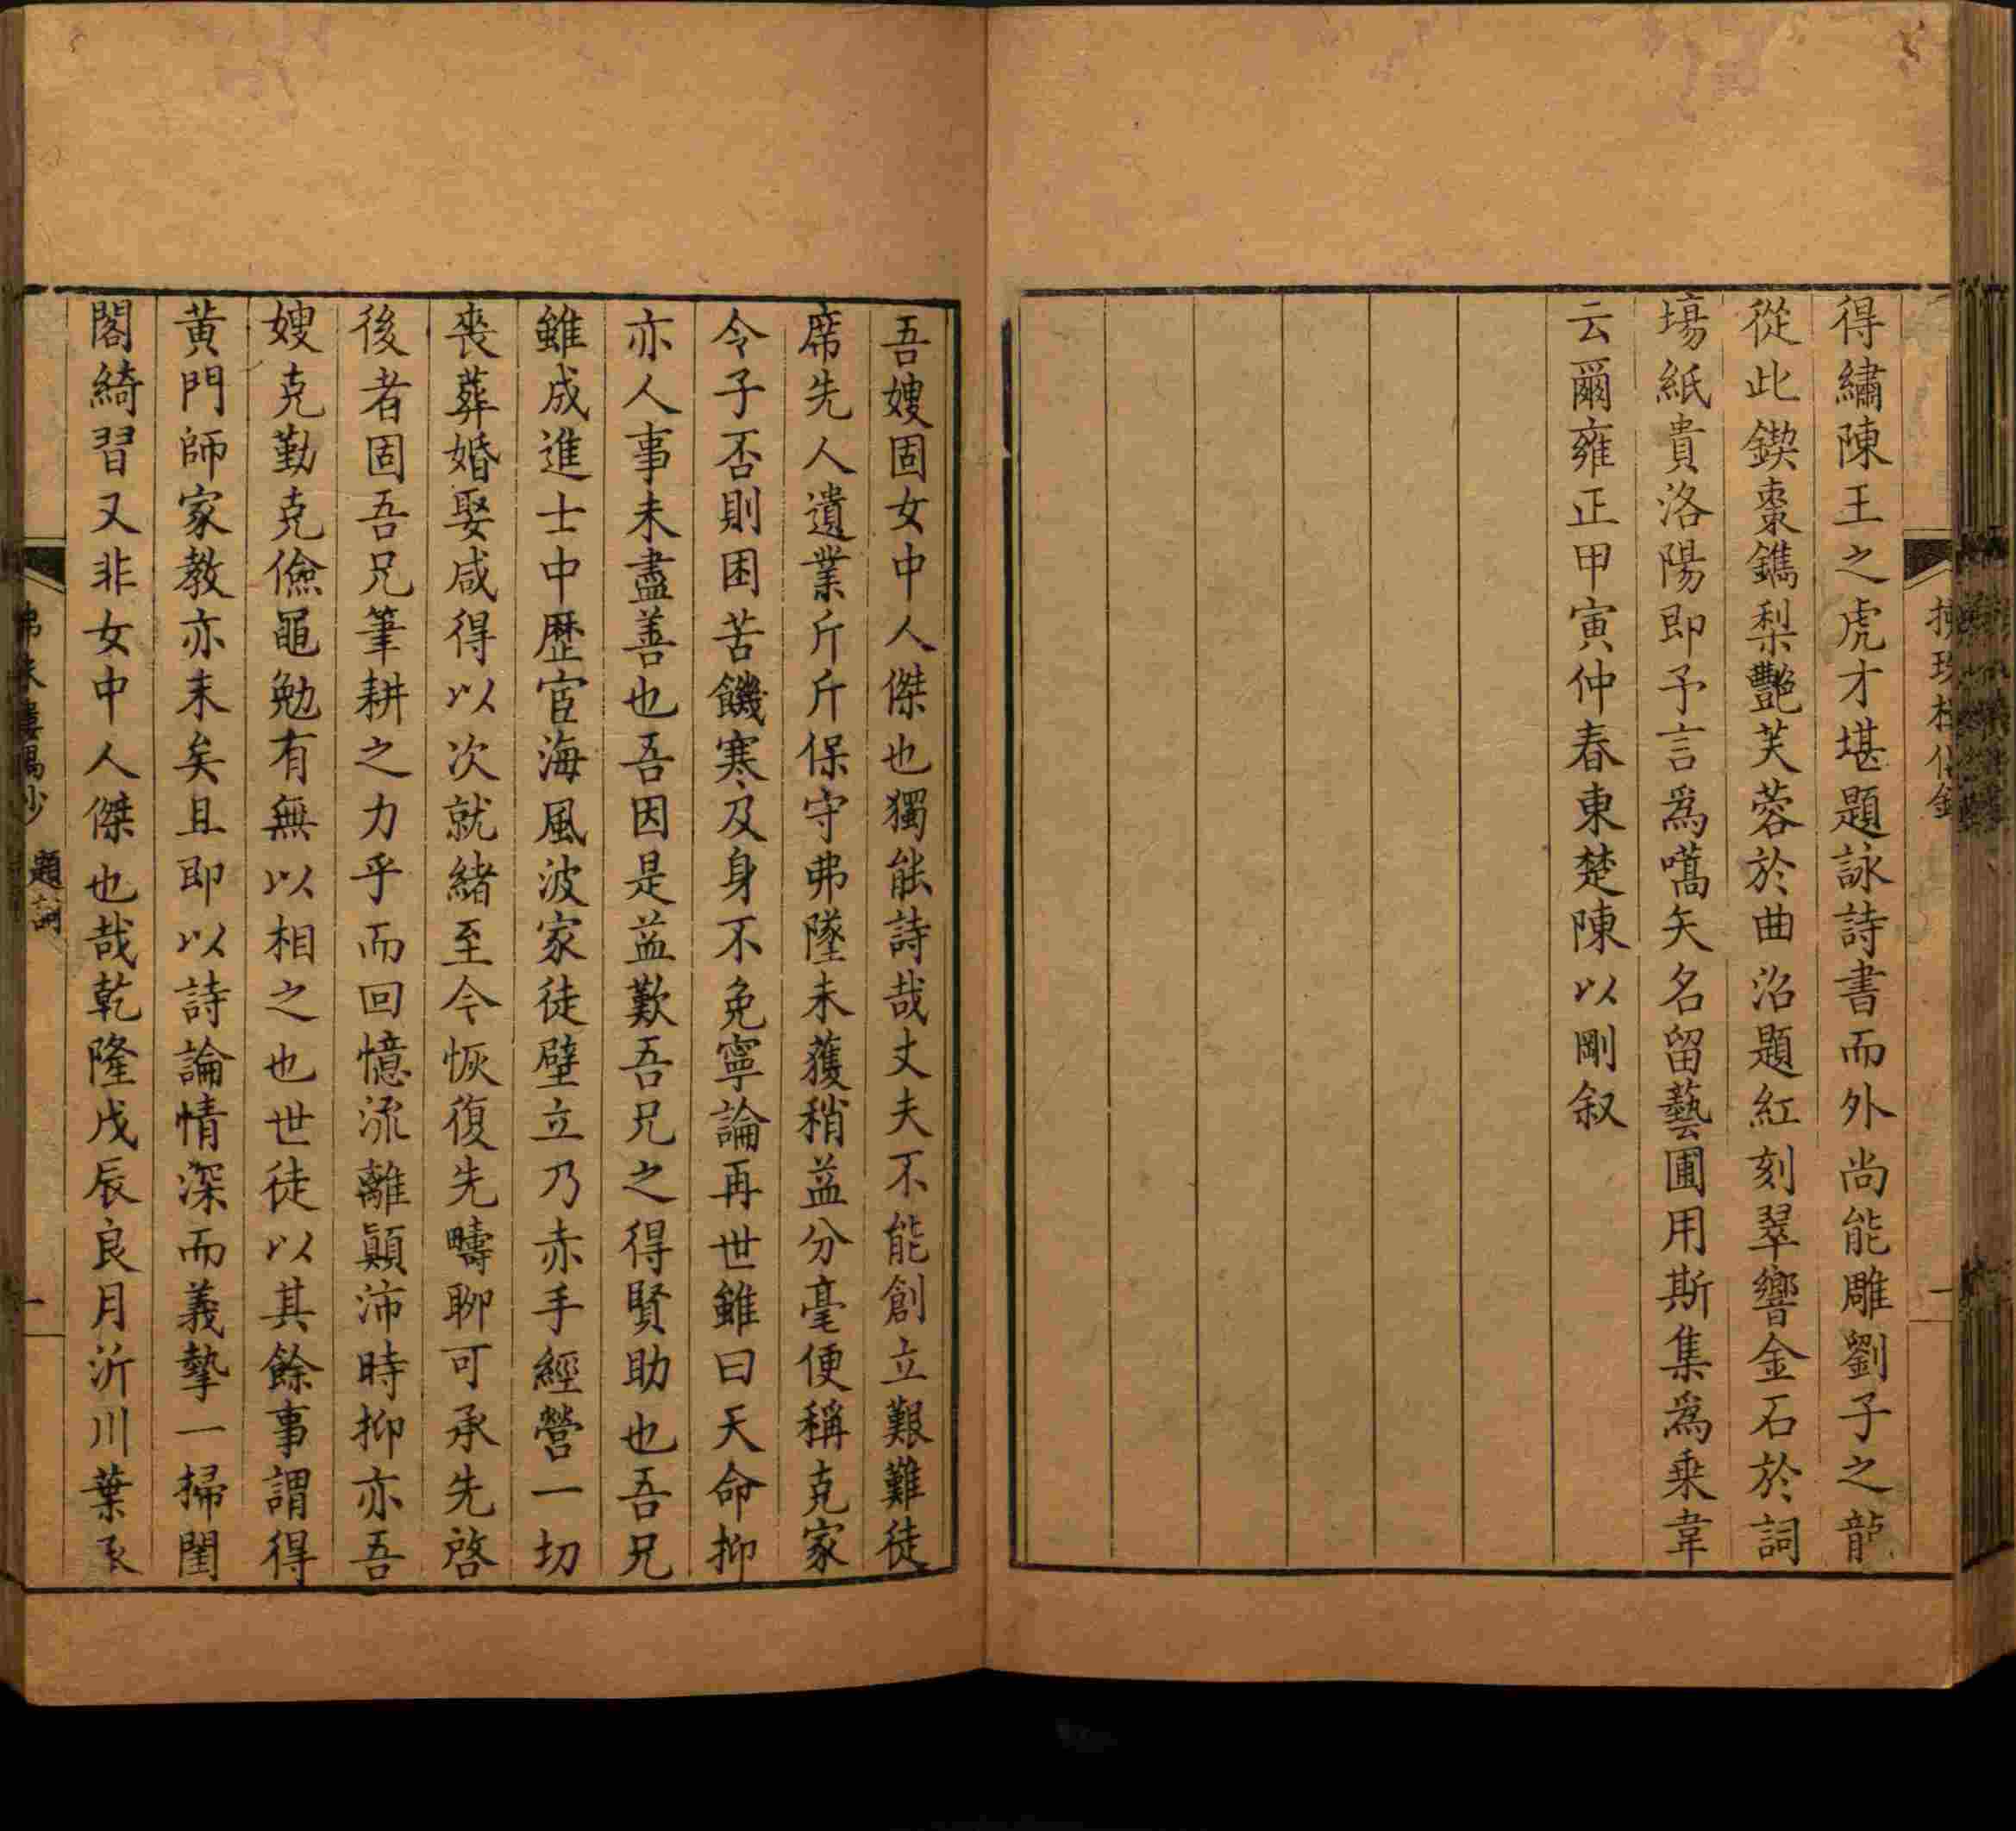 得繡陳王之虎才堪題詠詩書而外尚能雕劉子之龍
從此鍥棗鐫梨艷芙蓉於曲沼題紅刻翠響金石於詞
塲紙貴洛陽即予言爲嚆矢名留藝圃用斯集爲乗韋
云爾雍正甲寅仲春東楚陳以剛叙
吾嫂固女中人傑也獨能詩哉丈夫不能創立艱難徒
席先人遺業斤斤保守弗墜未獲稍益分毫便稱克家
令子否則困苦饑寒及身不免寧論再世雖曰天命抑
亦人事未盡善也吾因是益歎吾兄之得賢助也吾兄
雖成進士中歴宦海風波家徒壁立乃赤手經營一切
喪葬婚娶咸得以次就緒至今恢復先疇聊可承先啓
後者固吾兄筆耕之力乎而回憶流離顛沛時抑亦吾
嫂克勤克儉黽勉有無以相之也世徒以其餘事謂得
黄門師家教亦末矣且即以詩論情深而義摯一掃閨
閣綺習又非女中人傑也哉乾隆戊辰良月沂川葉承
題詞
一